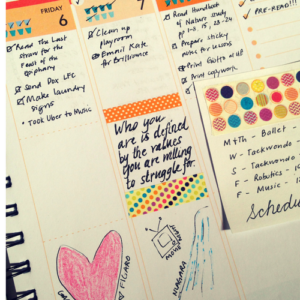 FRIDAY
6
Read The Last
Straw for the
Feast of the
Epiphany
Send Box LFC
Make laundry
signs
• TOOK Uber to Music
7
Clean up
playroom
Email Kate
for Brilliance
Who you
are is defined
by the values
you are willing
to struggle for.
Read Handbook
of Nature Study
pp 1-3, 15, 23-24
Prepare sticky
notes for lessons
Print
PRE-READ!!!
M+Th - Ballet -
W - Taekwondo
S - Taekwondo
F - Robotics
F - Music
Schedu
FIGARO
NIAGARA